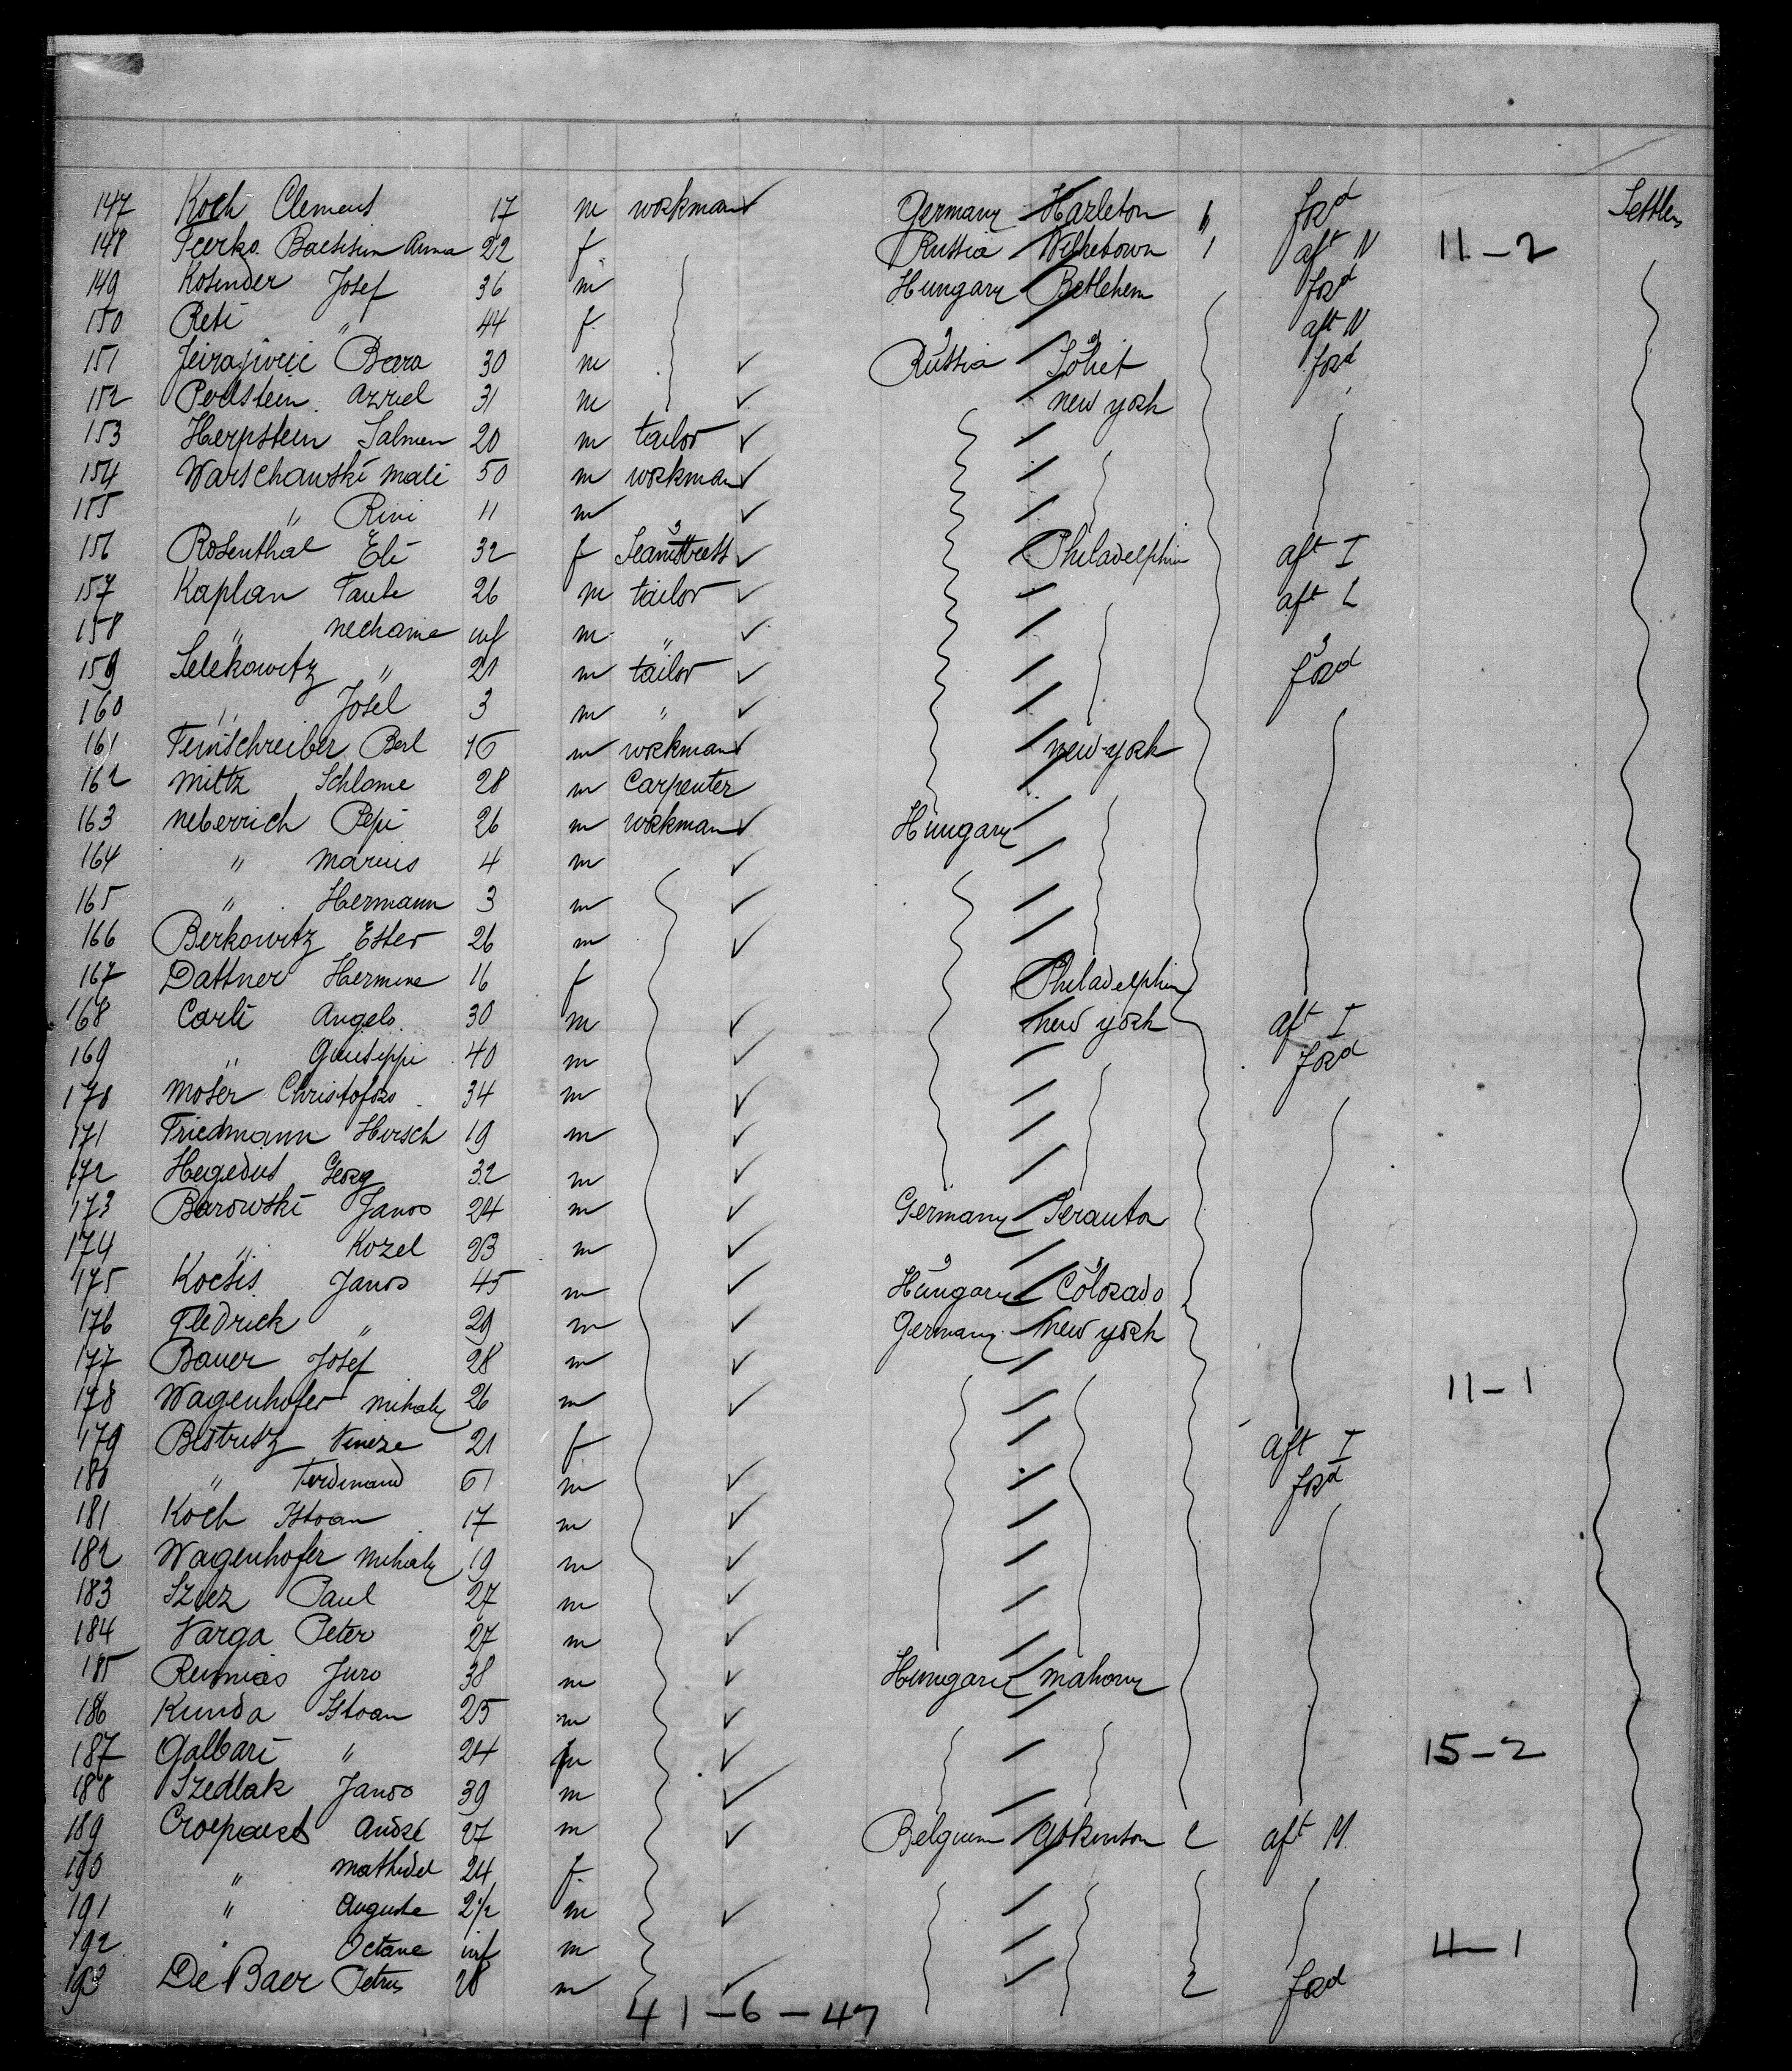 147 Koch Clement 17 m workman ✓ Germany Harleton 1 ford Settlers
148 Baetsium Anna 22 f Russia 1 aft N 11-2
149 Kosinder Josef 36 m Hungary Betlehem ford
150 Reti " 44 f aft N
151 Bara 30 m ✓ Russia Joliet ford
152 Perlstein Azriel 31 m ✓ new york
153 Herpstein Salmen 20 m tailor ✓
154 Warschawski mali 50 m workman ✓
155 " Rivi 11 m ✓
156 Rosenthal Eli 32 f Seamstress ✓ Philadelphia aft I
157 Kaplan Taube 26 m tailor ✓ aft L
158 " nechame inf m " ✓
159 Selekowitz " 21 m tailor ✓ ford
160 " Josel 3 m " ✓
161 Feinschreiber Berl 46 m workman ✓ new-york
162 miltz Schlome 28 m Carpenter
163 neberrich Pepi 26 m workman ✓ Hungary
164 " marius 4 m ✓
165 " Hermann 3 m ✓
166 Berkowitz Ester 26 m ✓
167 Dattner Hermine 16 f Philadelphia
168 Carli Angelo 30 m ✓ new york aft I
169 " Guiseppi 40 m ✓ ford
170 Moser Christoforo 34 m ✓
171 Friedmann Hersch 19 m ✓
172 Hegedus Georg 32 m ✓
173 Barowski Janos 24 m ✓ Germany Scranton
174 " Kozel 23 m ✓
175 Kocsis Janos 45 m ✓ Hungary Colorado
176 Fledrick " 29 m ✓ Germany new york
177 Bauer Josef 28 m ✓
178 Wagenhofer mihaly 26 m ✓ 11-1
179 Bistritz Vincze 21 f aft I
180 " Ferdinand 61 m ✓ ford
181 Koch Istvan 17 m ✓
182 Wagenhofer mihaly 19 m ✓
183 Szuez Paul 27 m ✓
184 Varga Peter 27 m ✓
185 Juro 38 m ✓ Hungary mahony
186 Kunda Istvan 25 m ✓
187 Galbari " 24 m ✓ 15-2
188 Szedlak Janos 39 m ✓
189 André 27 m ✓ Belgium Atkinson 2 aft M
190 " mathilde 24 f
191 " Auguste 2 1/2 m ✓
192 " Octave inf m 4-1
193 De Baer Petrus 28 m ✓ 2 ford
41-6-47